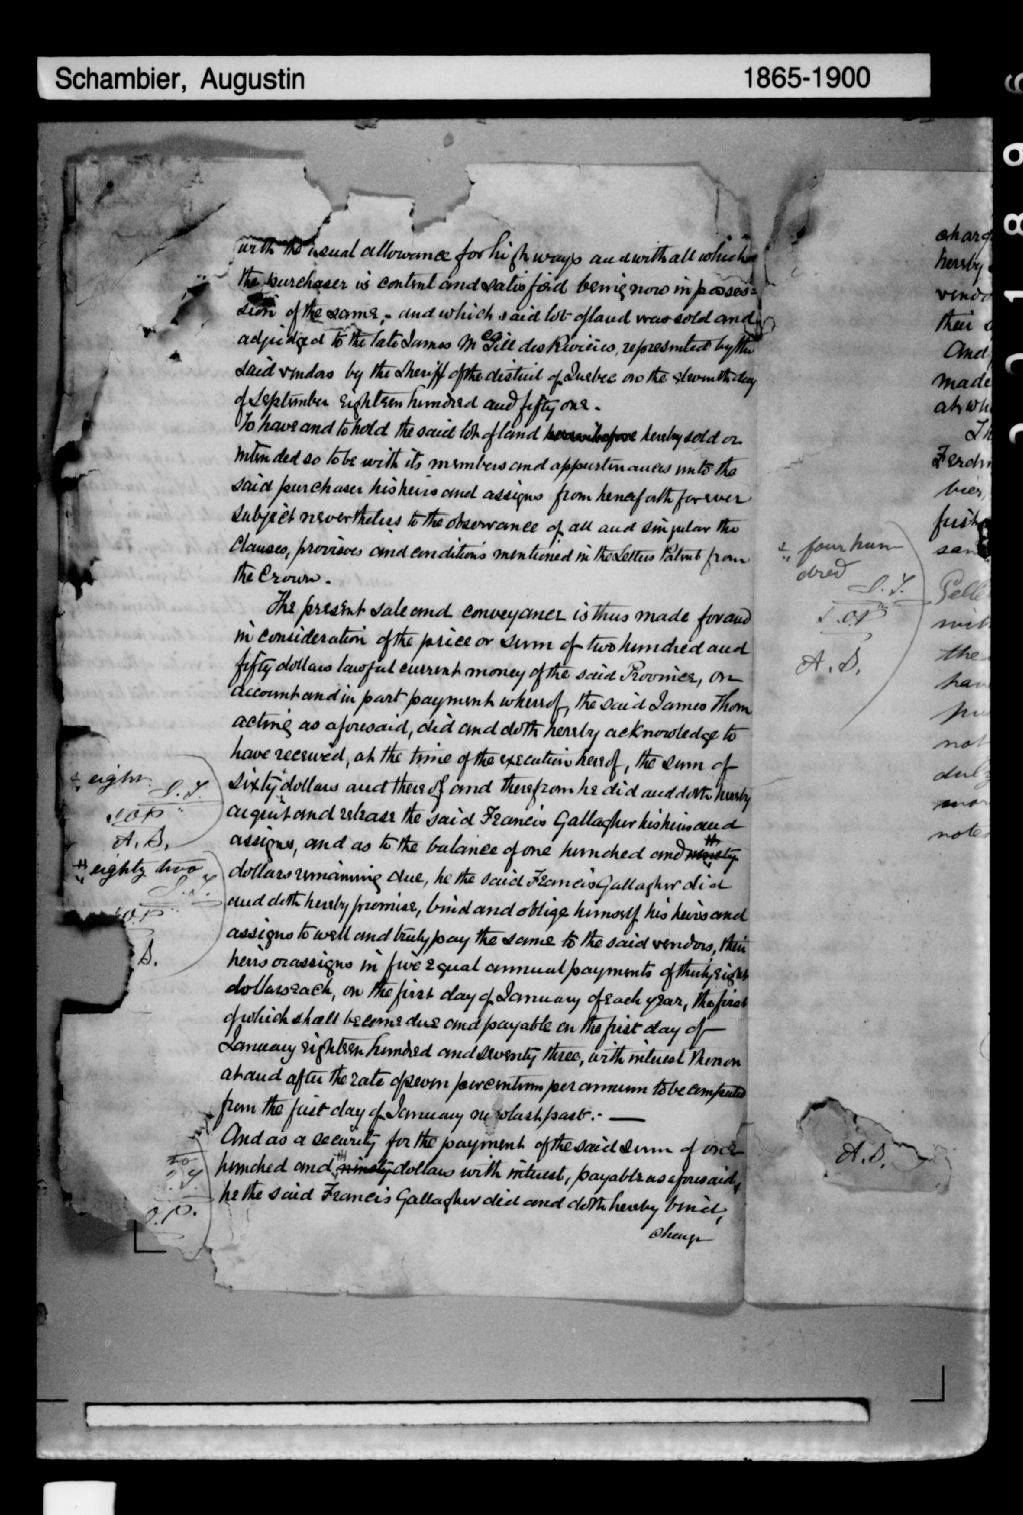 Schambier, Augustin 1865-1900
with the usual allowance for highways and with all which
the purchaser is content and satisfied being now in posses=
sion of the same, - and which said lot of land was sold and
adjudged to the late James McGill des Rivières, represented by the
said vendors by the Sheriff of the district of Quebec on the eleventh day
of September eighteen hundred and fifty one.
To have and to hold the said lot of land hereinbefore hereby sold or
intended so to be with its members and appurtenances unto the
said purchaser his heirs and assigns from henceforth for ever
subject nevertheless to the observance of all and singular the
clauses, provisoes and conditions mentioned in the Letters Patent from
the Crown.
The present sale and conveyance is thus made for and
in consideration of the price or sum of two hundred and
fifty dollars lawful current money of the said Province, on
account and in part payment whereof, the said James Thom
acting as aforesaid, did and doth hereby acknowledge to
have received, at the time of the execution hereof, the sum of
sixty dollars and thereof and therefrom he did and doth hereby
acquit and release the said Francis Gallagher his heirs and
assigns, and as to the balance of one hundred and ninety
dollars remaining due, he the said Francis Gallagher did
and doth hereby promise, bind and oblige himself his heirs and
assigns to well and truly pay the same to the said vendors, their
heirs or assigns in five equal annual payments of thirty eight
dollars each, on the first day of January of each year, the first
of which shall become due and payable on the first day of
January eighteen hundred and seventy three, with interest thereon
at and after the rate of seven per centum per annum to be computed
from the first day of January now last past. —
And as a security for the payment of the said sum of one
hundred and ninety dollars with interest, payable as aforesaid,
he the said Francis Gallagher did and doth hereby bind,
charge
eight
J.T.
A.S.
eighty two
J.T.
S.
J.P.
four hun
dred
J.T.
A.S.
A.S.
charg
hereby
vendo
their
And
made
at wh
Th
Ferdin
bier,
first
san
Gell
wit
the
hav
not
duly
notes